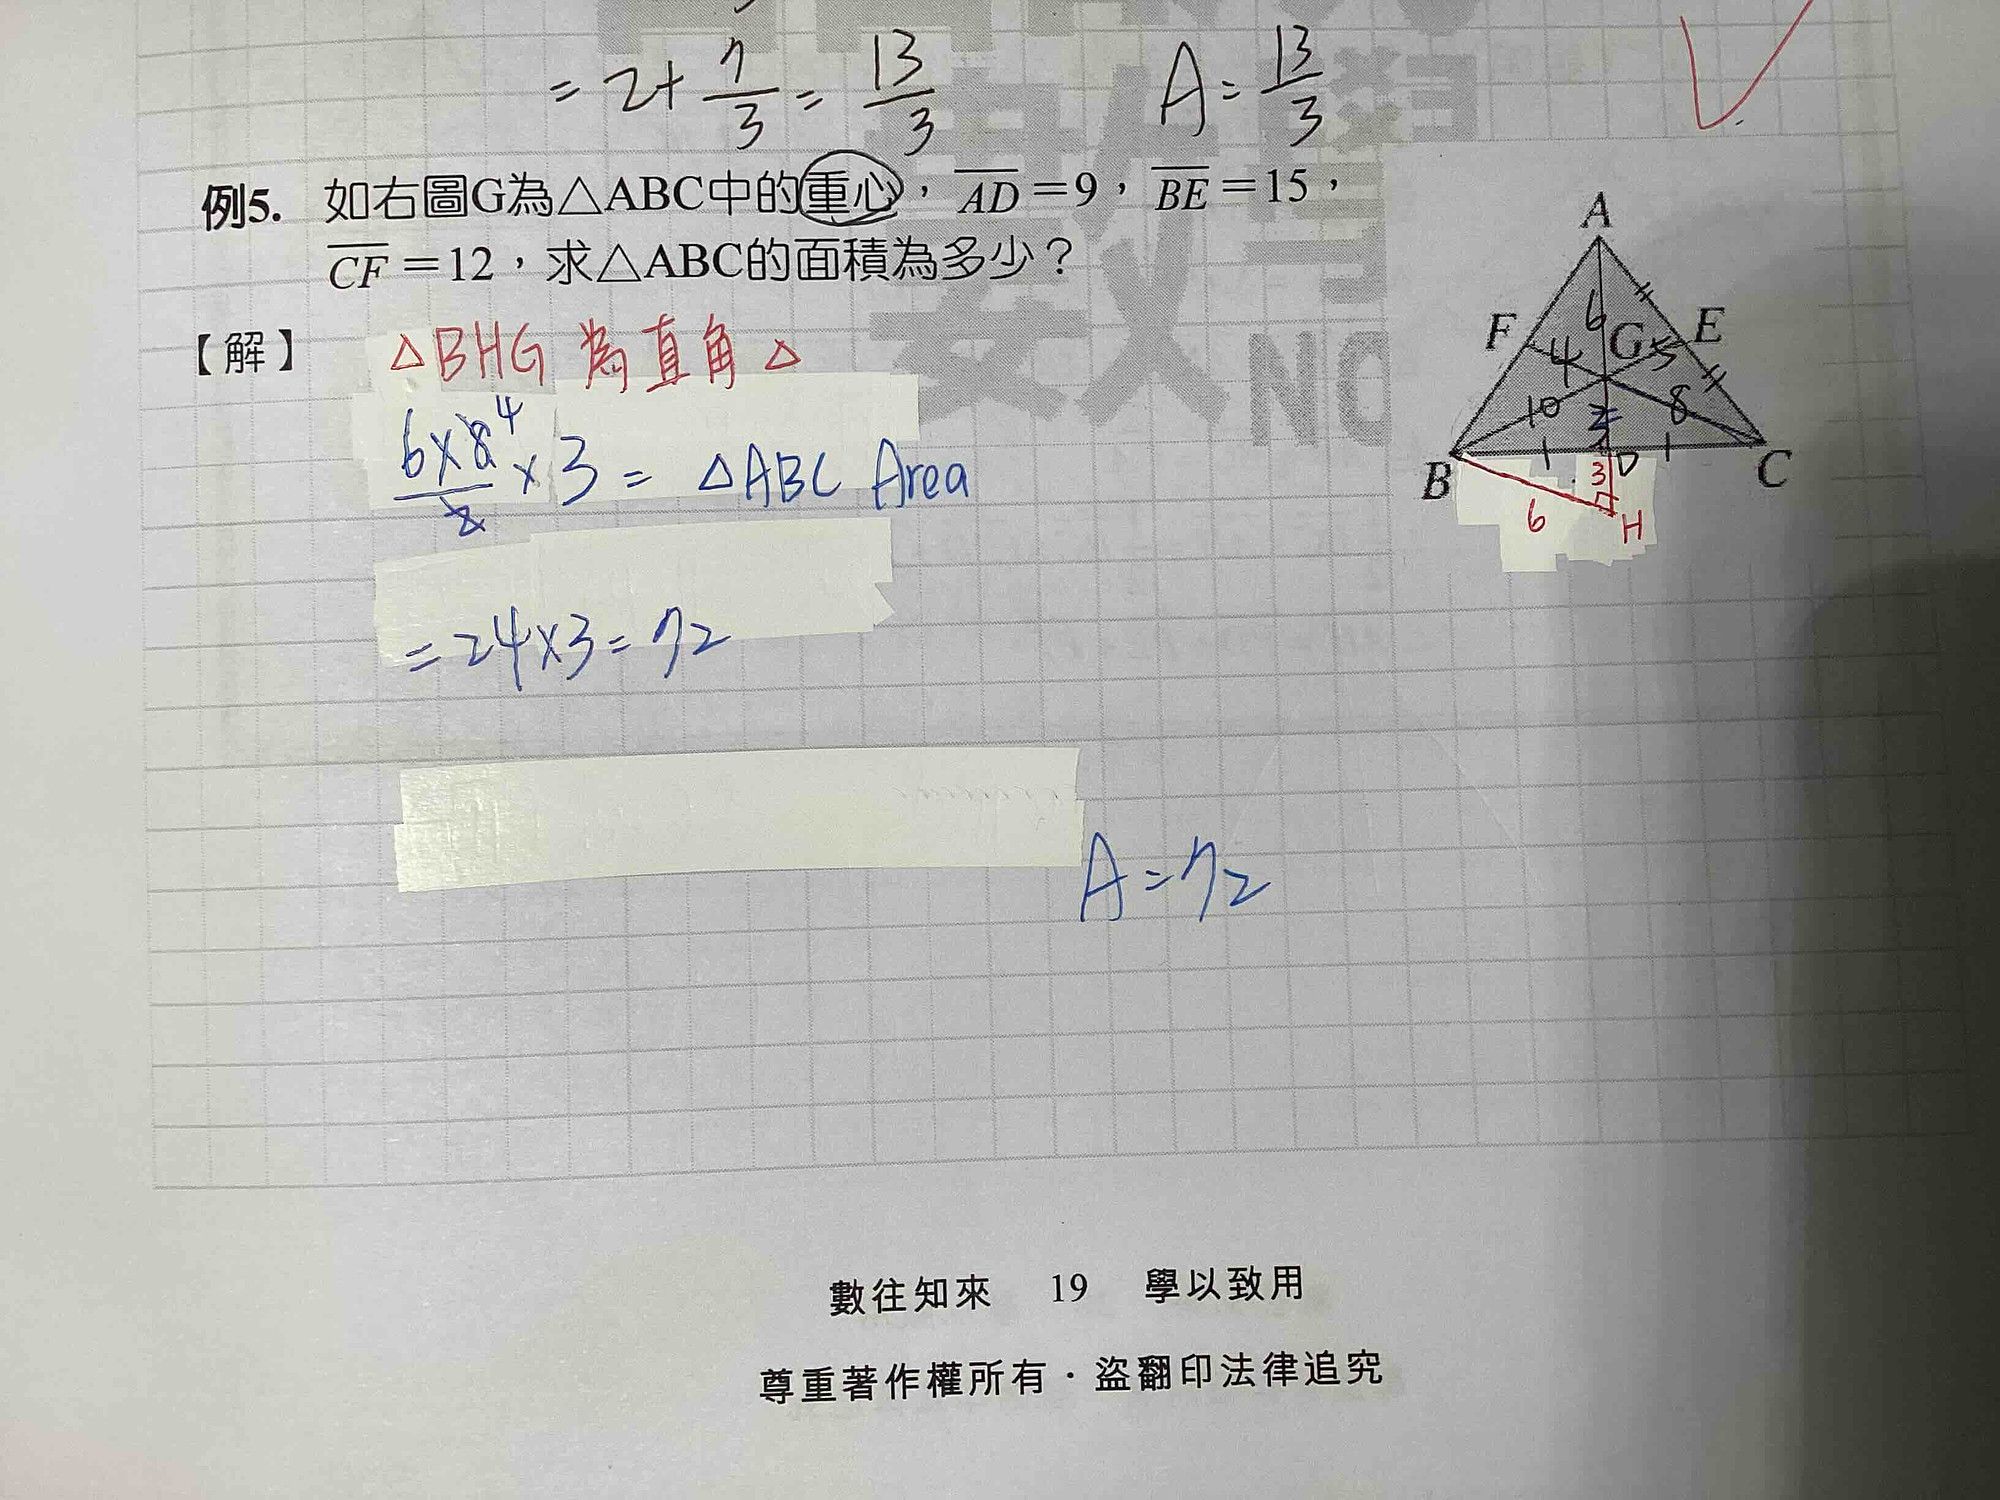 = 2 + 7/3 = 13/3 A = 13/3
例5. 如右圖G為△ABC中的重心,AD=9,BE=15,
CF=12,求△ABC的面積為多少?
【解】 △BHG 為直角△
6×8/2 ×3 = △ABC Area
4
= 24×3 = 72
A = 72
A
F 6 G E
4 5
10 2 8
B 1 D 1 C
3
6 H
數往知來 19 學以致用
尊重著作權所有・盜翻印法律追究